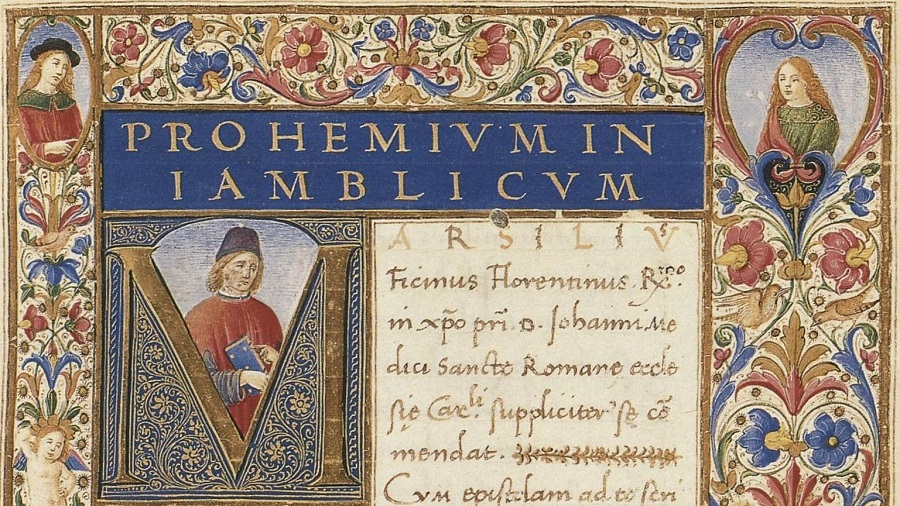 PROHEMIVM IN
IAMBLICVM
MARSILIVS
Ficinus Florentinus. R̃mo
in xp̃o pri. D. Johanni. Me
dici Sancte Romane eccle
się Carli suppliciter se cō
mendat.
Cvm epistolam ad te scri